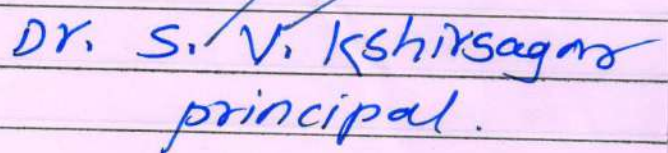 Dr. S. V. Kshirsagar
principal.